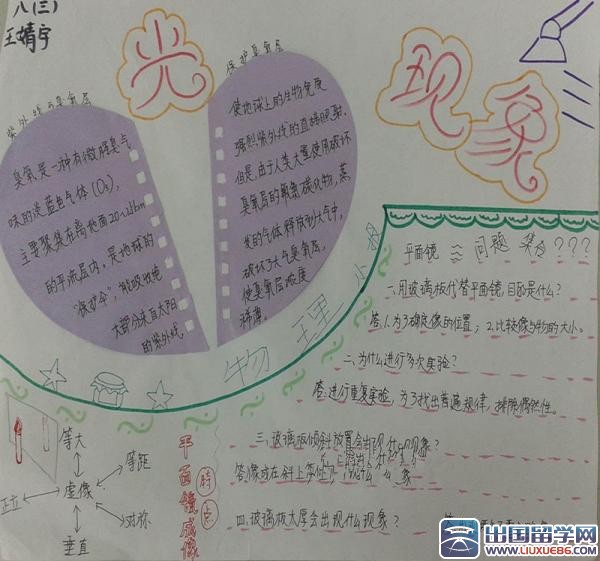 八(三)
王婧宇
光
现象
紫外线与臭氧层
臭氧是一种有微腥臭气
味的淡蓝色气体(O₃),
主要聚集在离地面20~
的平流层内,是地球的
"保护伞",能吸收绝
大部分来自太阳
的紫外线
保护臭氧层
使地球上的生物免受
强烈紫外线的直接照射.
但是,由于人类大量使用破坏
臭氧层的氟氯碳化物,蒸
发的气体释放到大气中,
破坏了大气臭氧层,
使臭氧层浓度
稀薄。
物理小报
平面镜 问题 集合???
一.用玻璃板代替平面镜,目的是什么?
答.1.为了确定像的位置; 2.比较像与物的大小。
二.为什么进行多次实验?
答.进行重复实验,为了找出普遍规律,排除偶然性。
三.玻璃板倾斜放置会出现什么现象?
四.玻璃板太厚会出现什么现象?
平面镜成像
特点
等大
等距
正立
虚像
对称
垂直
出国留学网
WWW.LIUXUE86.COM